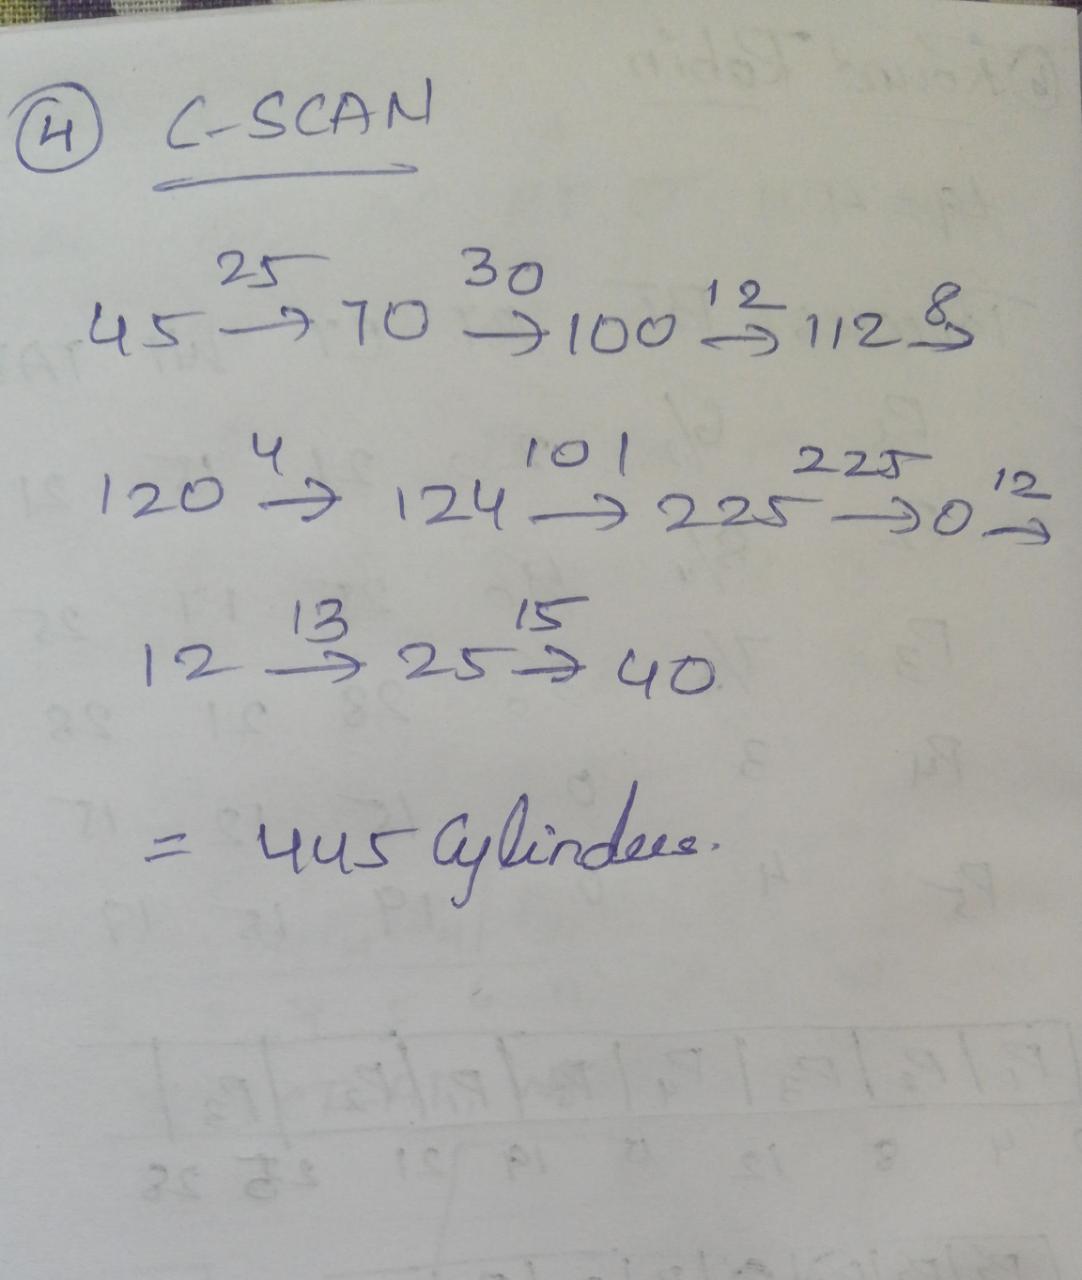 ④ C-SCAN
45 25→ 70 30→ 100 12→ 112 8→
120 4→ 124 101→ 225 225→ 0 12→
12 13→ 25 15→ 40
= 445 Cylinders.